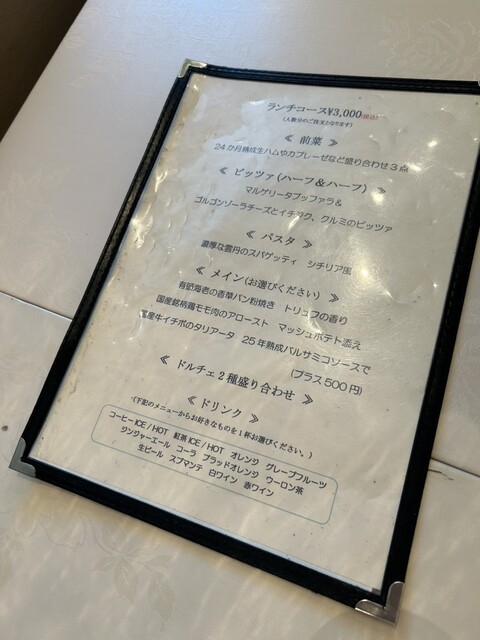 ランチコース¥3,000(税込)
(人数分のご注文となります)
≪ 前菜 ≫
24か月熟成生ハムやカプレーゼなど盛り合わせ3点
≪ ピッツァ(ハーフ&ハーフ) ≫
マルゲリータブッファラ&
ゴルゴンゾーラチーズとイチジク、クルミのピッツァ
≪ パスタ ≫
濃厚な雲丹のスパゲッティ シチリア風
≪ メイン(お選びください) ≫
有頭海老の香草パン粉焼き トリュフの香り
国産銘柄鶏モモ肉のアロースト マッシュポテト添え
国産牛イチボのタリアータ 25年熟成バルサミコソースで
(プラス500円)
≪ ドルチェ2種盛り合わせ ≫
≪ ドリンク ≫
(下記のメニューからお好きなものを1杯お選びください。)
コーヒーICE/HOT 紅茶ICE/HOT オレンジ グレープフルーツ
ジンジャーエール コーラ ブラッドオレンジ ウーロン茶
生ビール スプマンテ 白ワイン 赤ワイン